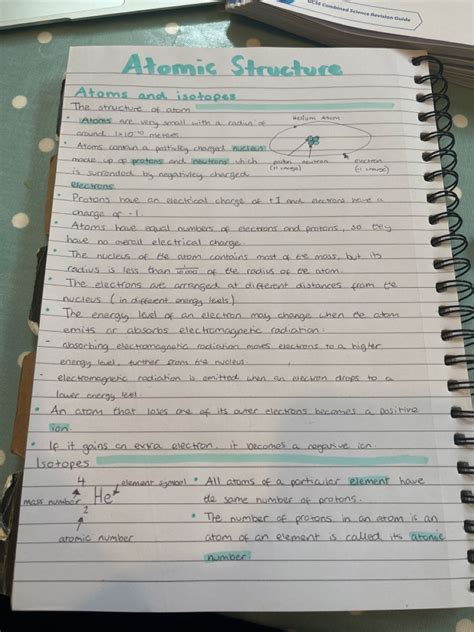 GCSE Combined Science Revision Guide
Atomic Structure
Atoms and isotopes
The structure of atom
• Atoms are very small with a radius of
around 1×10⁻¹⁰ metres.
Helium Atom
• Atoms contain a postiviley charged nucleus
made up of protons and neutrons which
is surronded by negativiley charged
electrons
proton neutron electron
(+1 charge) (-1 charge)
• Protons have an electrical charge of +1 and electrons have a
charge of -1.
• Atoms have equal numbers of electrons and protons, so they
have no overall electrical charge.
• The nucleus of the atom contains most of the mass, but its
radius is less than of the radius of the atom.
• The electrons are arranged at different distances from the
nucleus (in different energy levels)
• The energy level of an electron may change when the atom
emits or absorbs electromagnetic radiation.
- absorbing electromagnetic radiation moves electrons to a higher
energy level, further from the nucleus.
- electromagnetic radiation is emitted when an electron drops to a
lower energy level.
• An atom that loses one of its outer electrons becomes a positive
ion.
• If it gains an extra electron, it becomes a negative ion.
Isotopes
4
element symbol
mass number He
2
atomic number
• All atoms of a particular element have
the same number of protons.
• The number of protons in an atom is an
atom of an element is called its atomic
number.